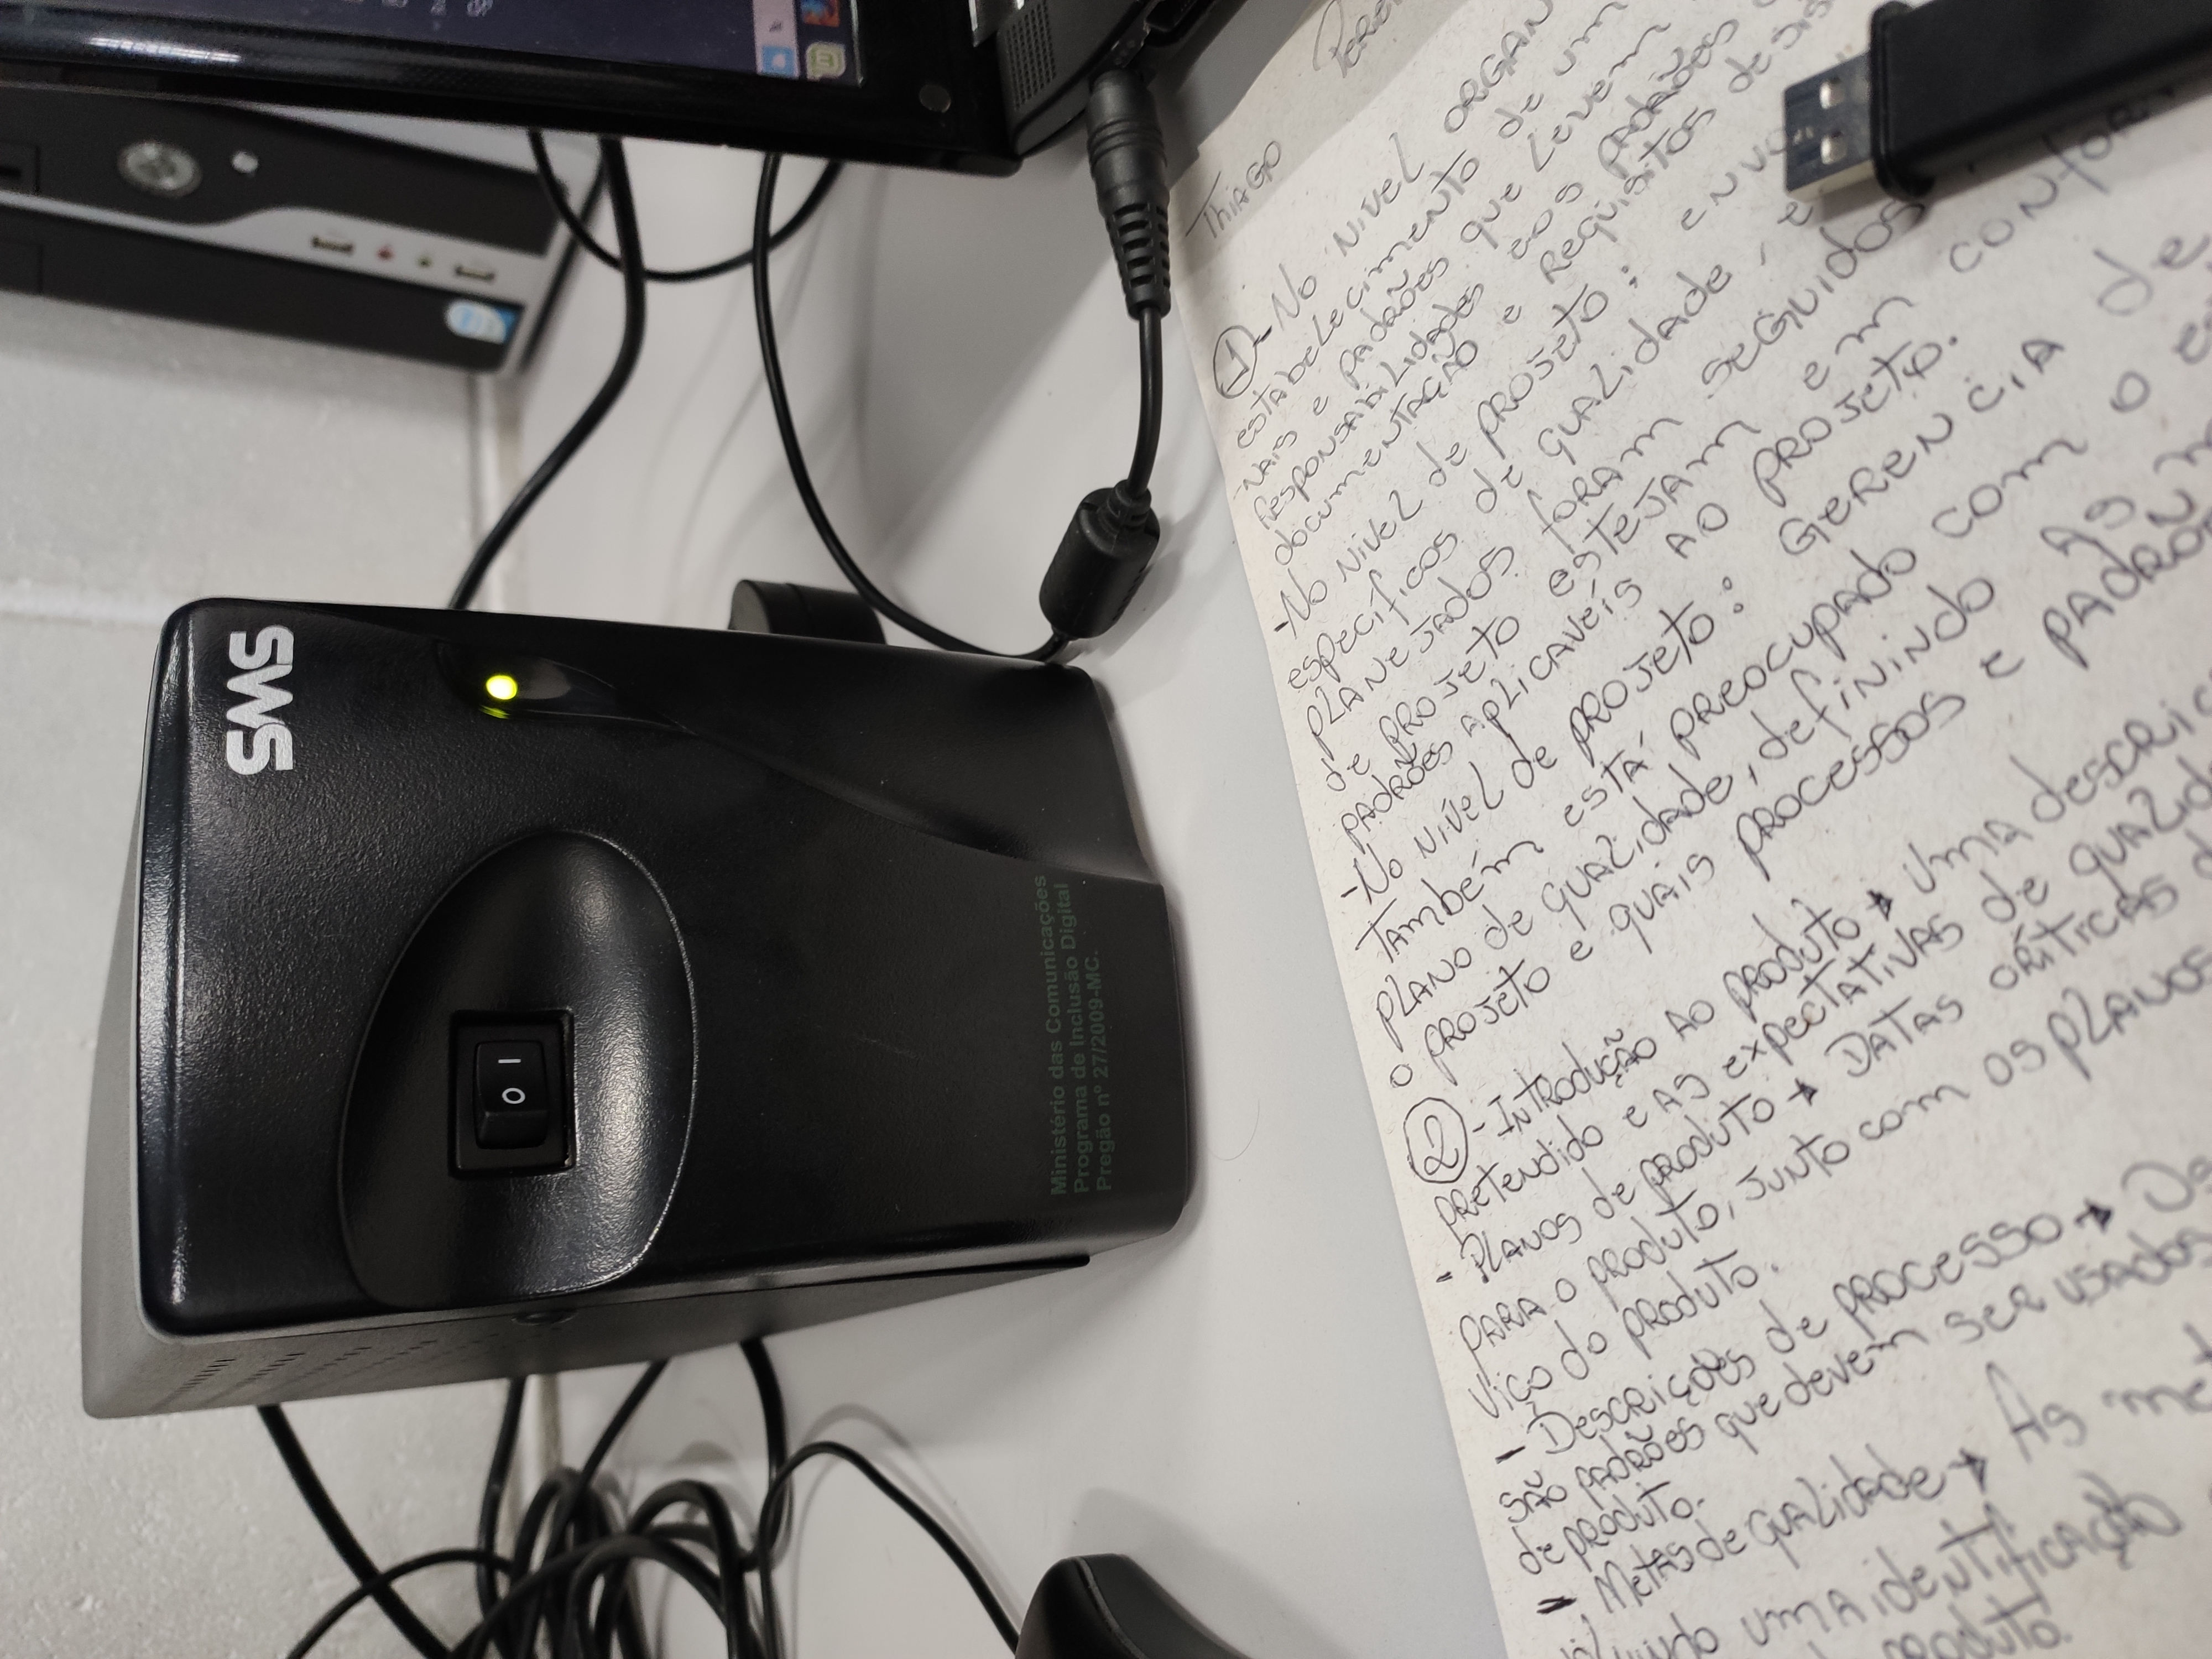 SMS
O I
Ministério das Comunicações
Programa de Inclusão Digital
Pregão nº 27/2009-MC.
Thiago
1- No nível organ
estabelecimento de um
nais e padrões que levem
responsabilidades e os padrões
documentação e requisitos
- No nível de projeto: envo
específicos de qualidade, e
planejados foram seguidos
de projeto estejam em confor
padrões aplicaveis ao projeto.
- No nível de projeto: Gerencia de
Também está preocupado com o
plano de qualidade, definindo as
o projeto e quais processos e padrões
2- Introdução ao produto → uma descrição
pretendido e as expectativas de qualidade
- Planos de produto → Datas críticas
para o produto, junto com os planos
viço do produto.
- Descrições de processo →
são padrões que devem ser usados
de produto.
- Metas de qualidade → As
uma identificação
produto.